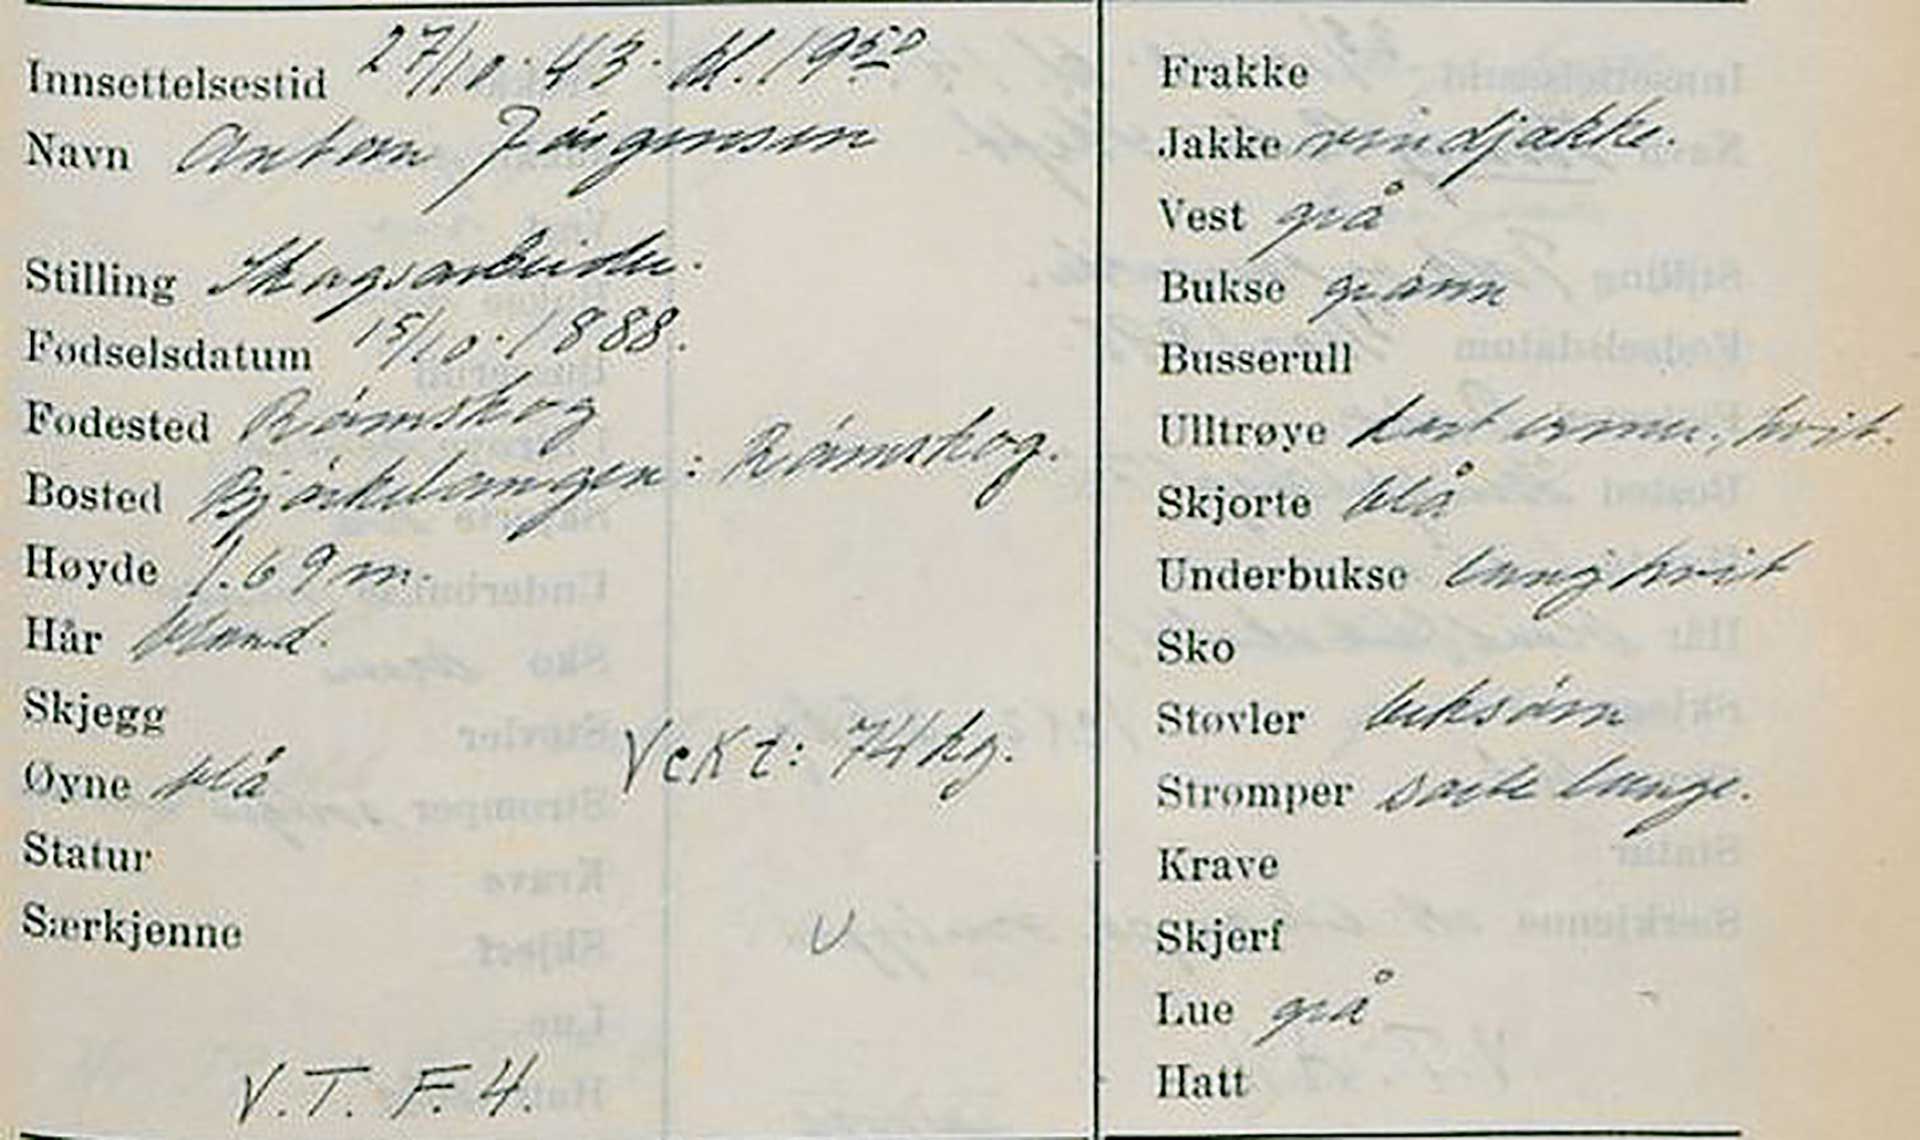 Innsettelsestid 27/10. 43. kl. 19⁵⁰
Navn Anton Jörgensen
Stilling Skogsarbeider.
Fødselsdatum 15/10. 1888.
Fødested Römskog
Bosted Björkelangen: Römskog.
Høyde 1.69 m.
Hår blond.
Skjegg
Øyne blå
Vekt: 74 kg.
Statur
Særkjenne
V.T. F.4.
Frakke
Jakke vindjakke.
Vest grå
Bukse grönn
Busserull
Ulltrøye kort ermer, hvit.
Skjorte blå
Underbukse lang hvit
Sko
Støvler beksöm
Strømper sorte lange.
Krave
Skjerf
Lue grå
Hatt